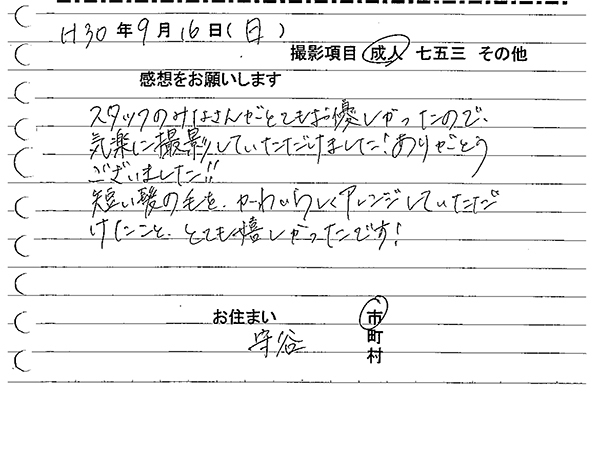 H30年9月16日(日)
撮影項目 成人 七五三 その他
感想をお願いします
スタッフのみなさんがとてもお優しかったので、
気楽に撮影していただけました!ありがとう
ございました!!
短い髪の毛を、かわいらしくアレンジしていただ
けたこと、とても嬉しかったです!
お住まい 市
守谷 町
村